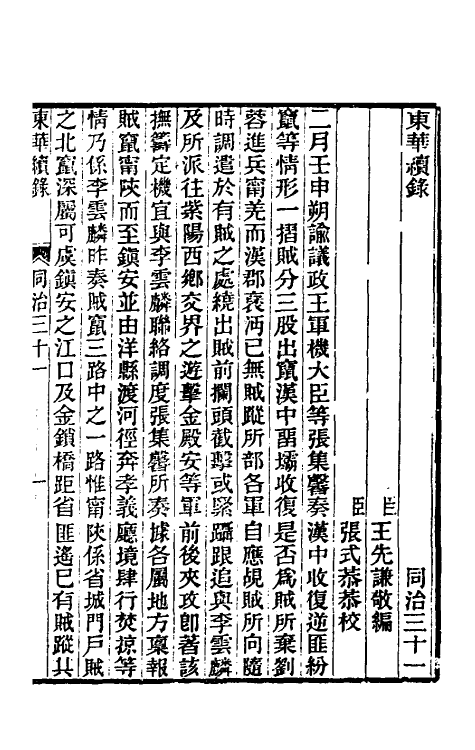 東華續錄 同治三十一
臣王先謙敬編
臣張式恭恭校
二月壬申朔諭議政王軍機大臣等張集馨奏漢中收復逆匪紛
竄等情形一摺賊分三股出竄漢中留壩收復是否為賊所棄劉
蓉進兵甯羌而漢郡褒沔已無賊蹤所部各軍自應覘賊所向隨
時調遣於有賊之處繞出賊前攔頭截擊或緊躡跟追與李雲麟
及所派往紫陽西鄉交界之遊擊金殿安等軍前後夾攻卽著該
撫籌定機宜與李雲麟聯絡調度張集馨所奏據各屬地方稟報
賊竄甯陝而至鎮安並由洋縣渡河徑奔孝義廳境肆行焚掠等
情乃係李雲麟昨奏賊竄三路中之一路惟甯陝係省城門戶賊
之北竄深屬可虞鎮安之江口及金鎖橋距省匪遙已有賊蹤其
東華續錄 同治三十一 一